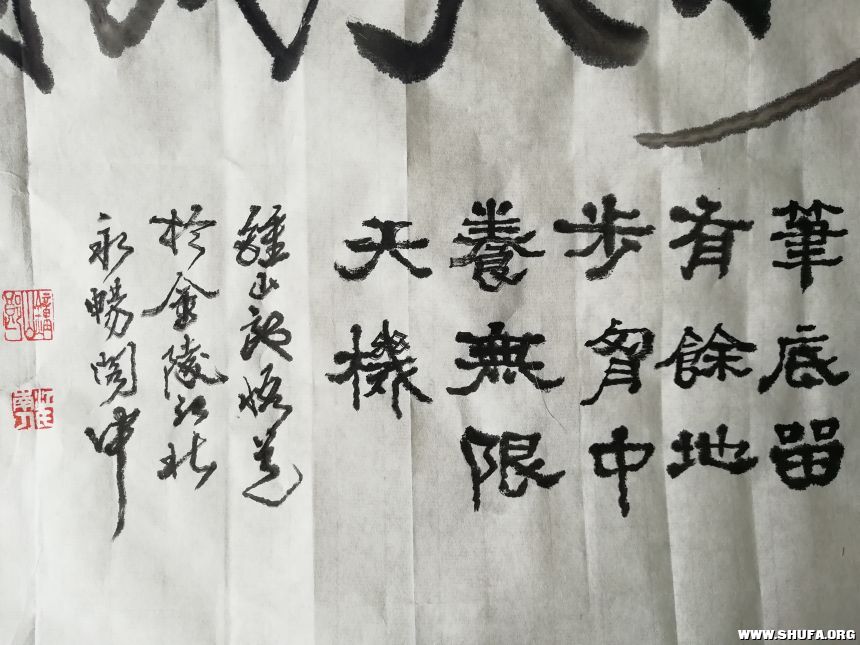 筆底留
有餘地
步胷中
養無限
天機
鍾山記悟道
於金陵江北
永暢閣中
WWW.SHUFA.ORG